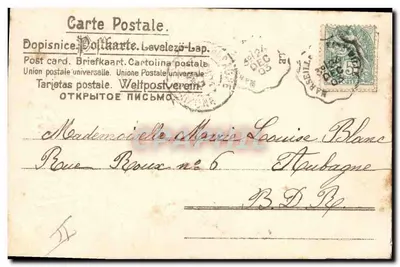 Carte Postale.
Dopisnice. Postkarte. Levelező-Lap.
Post card. Briefkaart. Cartolina postale.
Union postale universelle. Unione Postale universale.
Tarjetas postale. Weltpostverein.
ОТКРЫТОЕ ПИСЬМО.
24
DEC
03
MARSEILLE
Mademoiselle Marie Louise Blanc
Rue Roux nº 6 Aubagne
B.D.R
II